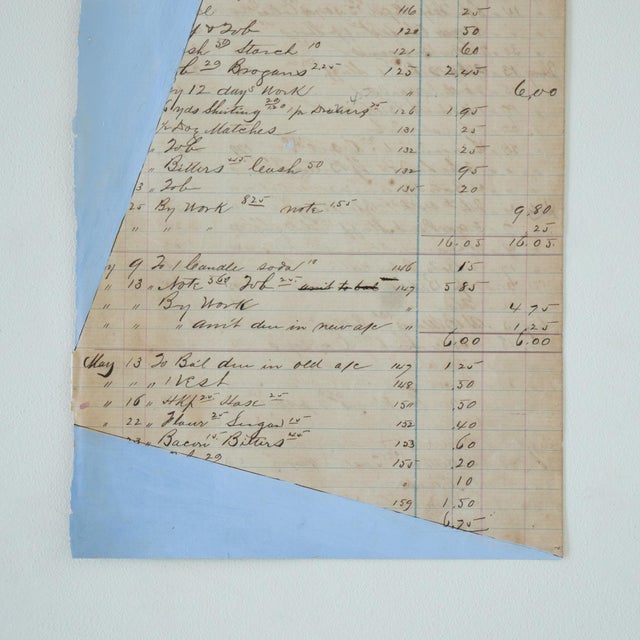 116 .25
& Tob 120 .50
50 Starch 10 121 .60
29 Brogans 2.25 125 2.45
By 12 days Work " 6.00
yds Shirting 1 pr Drawers 75 126 1.95
Matches 131 .25
" Tob 132 .25
" Bitters 45 Cash 50 132 .95
3 " Tob 135 .20
25 By Work 8 25 note 1 55 9.80
" " " .25
16.05 16.05
9 To 1 Candle soda 10 146 15
" 13 " Note 5 60 Tob 25 am't to bal 147 5.85
" By Work " 4.75
" " am't due in new a/c " 1.25
6.00 6.00
May 13 To Bal due in old a/c 147 1.25
" " " 1 Vest 148 .50
" 16 " Hkf 25 Hose 25 150 .50
" 22 " Flour 25 Sugar 15 152 .40
23 " Bacon 15 Bitters 45 153 .60
155 .20
" 10
159 1.50
6.75